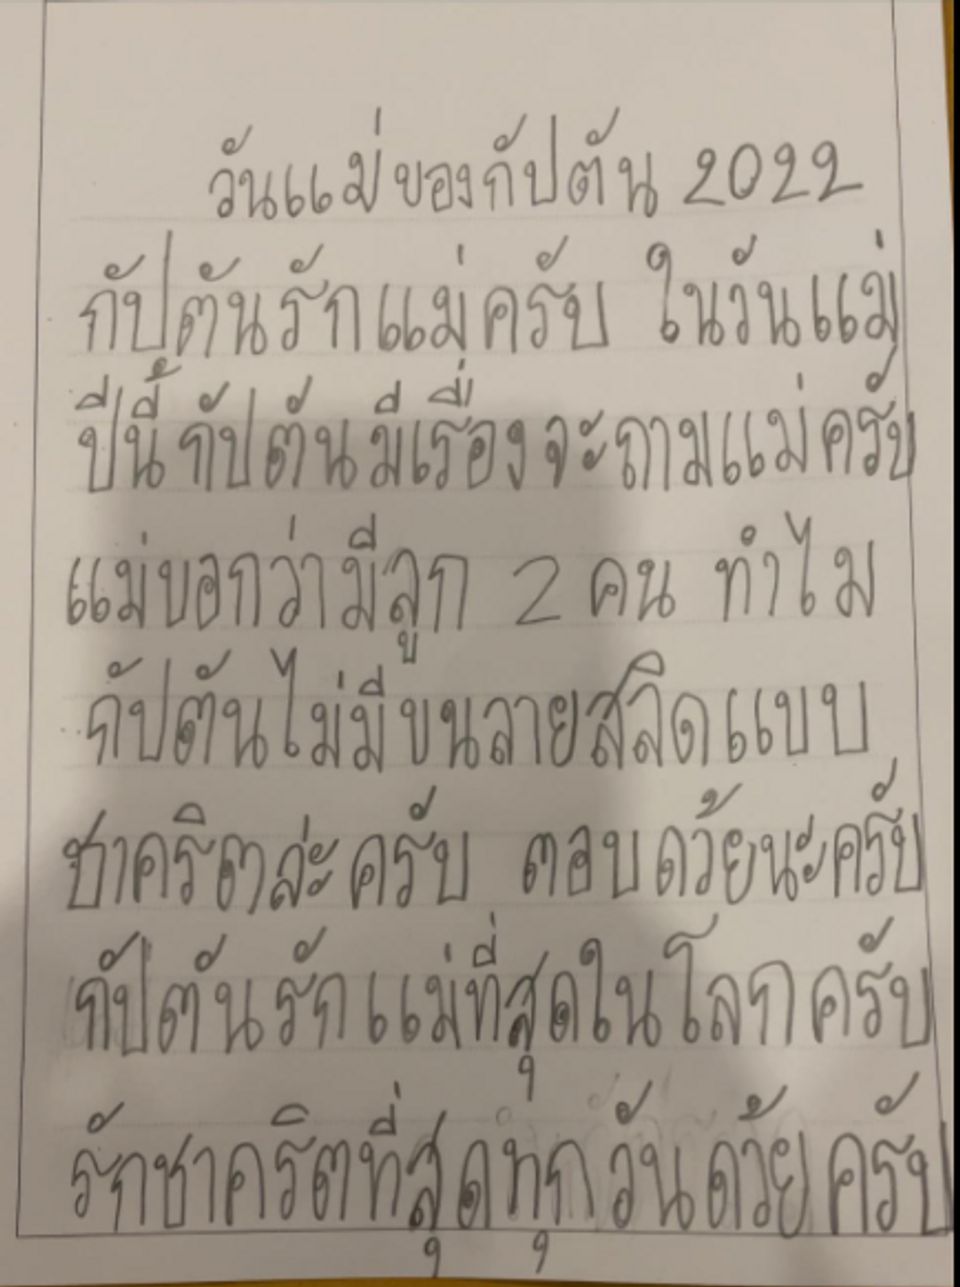 วันแม่ของกัปตัน 2022
กัปตันรักแม่ครับ ในวันแม่
ปีนี้ กัปตันมีเรื่องจะถามแม่ครับ
แม่บอกว่ามีลูก 2 คน ทำไม
กัปตันไม่มีขนลายสลิดแบบ
ชาคริตล่ะครับ ตอบด้วยนะครับ
กัปตันรักแม่ที่สุดในโลกครับ
รักชาคริตที่สุดทุกวันด้วยครับ